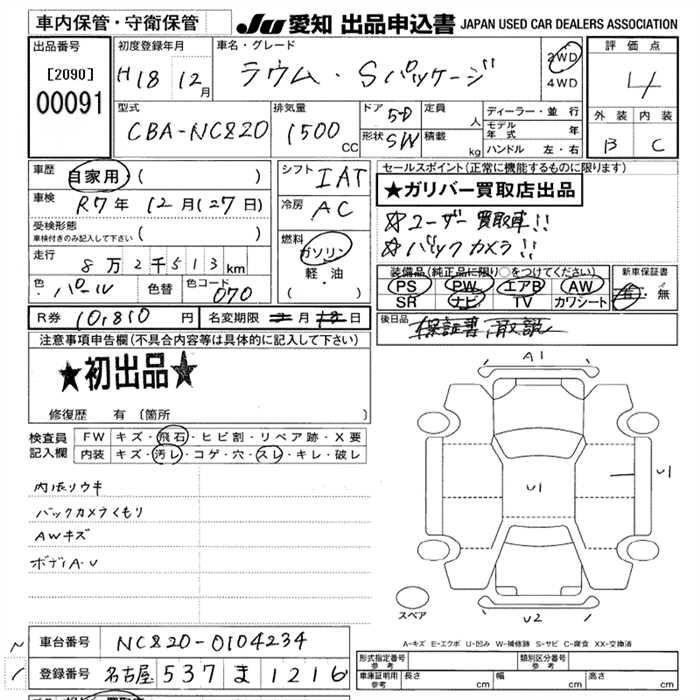 車内保管・守衛保管
JU 愛知 出品申込書 JAPAN USED CAR DEALERS ASSOCIATION
出品番号
[2090]
00091
初度登録年月
H18 12月
車名・グレード
ラウム・Sパッケージ
2WD
4WD
評価点
4
外装 内装
B C
型式
CBA-NCZ20
排気量
1500 CC
ドア 5D
形状 SW
定員 人
積載 kg
ディーラー・並行
モデル年式 年
ハンドル 左・右
車歴 自家用 ( )
車検 R7年 12月(27日)
受検形態
車検付きのみ記入して下さい ( )
走行 8万2千513km
色 パール 色替 色コード 070
シフト IAT
冷房 AC
燃料
ガソリン
軽・油
( )
セールスポイント(正常に機能するものに限ります)
★ガリバー買取店出品
☆ユーザー買取車!!
☆バックカメラ!!
装備品(純正品に限り○をつけてください)
PS PW エアB AW
SR ナビ TV カワシート
新車保証書
有・無
R券 10,810円 名変期限 月 日
後日品 保証書 取説
注意事項申告欄(不具合内容等は具体的に記入して下さい)
★初出品★
修復歴 有 〔箇所
検査員記入欄
FW キズ・飛石・ヒビ割・リペア跡・X要
内装 キズ・汚レ・コゲ・穴・スレ・キレ・破レ
内張リウキ
バックカメラくもり
AWキズ
ボディA・U
A1
U1
U1
U2
スペア
A-キズ E-エクボ U-凹み W-補修跡 S-サビ C-腐食 XX-交換済
車台番号 NCZ20-0104234
登録番号 名古屋 537 ま 1216
形式指定番号 参考
類別区分番号 参考
車庫証明用 参考 長さ cm 幅 cm 高さ cm